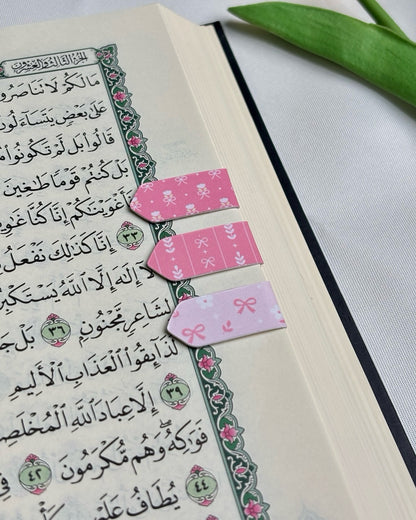 الجزء الثالث والعشرون
مَا لَكُمْ لَا تَنَاصَرُو
عَلَىٰ بَعْضٍ يَتَسَآءَلُو
قَالُوا۟ بَل لَّمْ تَكُونُوا۟
بَلْ كُنتُمْ قَوْمًا طَٰغِينَ
فَأَغْوَيْنَٰكُمْ إِنَّا كُنَّا غَٰوِ
٣٣ إِنَّا كَذَٰلِكَ نَفْعَلُ
إِلَٰهَ إِلَّا ٱللَّهُ يَسْتَكْبِرُ
لِشَاعِرٍ مَّجْنُونٍ ٣٦ بَلْ جَا
لَذَآئِقُوا۟ ٱلْعَذَابِ ٱلْأَلِيمِ
٣٩ إِلَّا عِبَادَ ٱللَّهِ ٱلْمُخْلَصِ
فَوَٰكِهُ وَهُم مُّكْرَمُونَ ٤٢ فِي
٤٤ يُطَافُ عَلَيْهِم